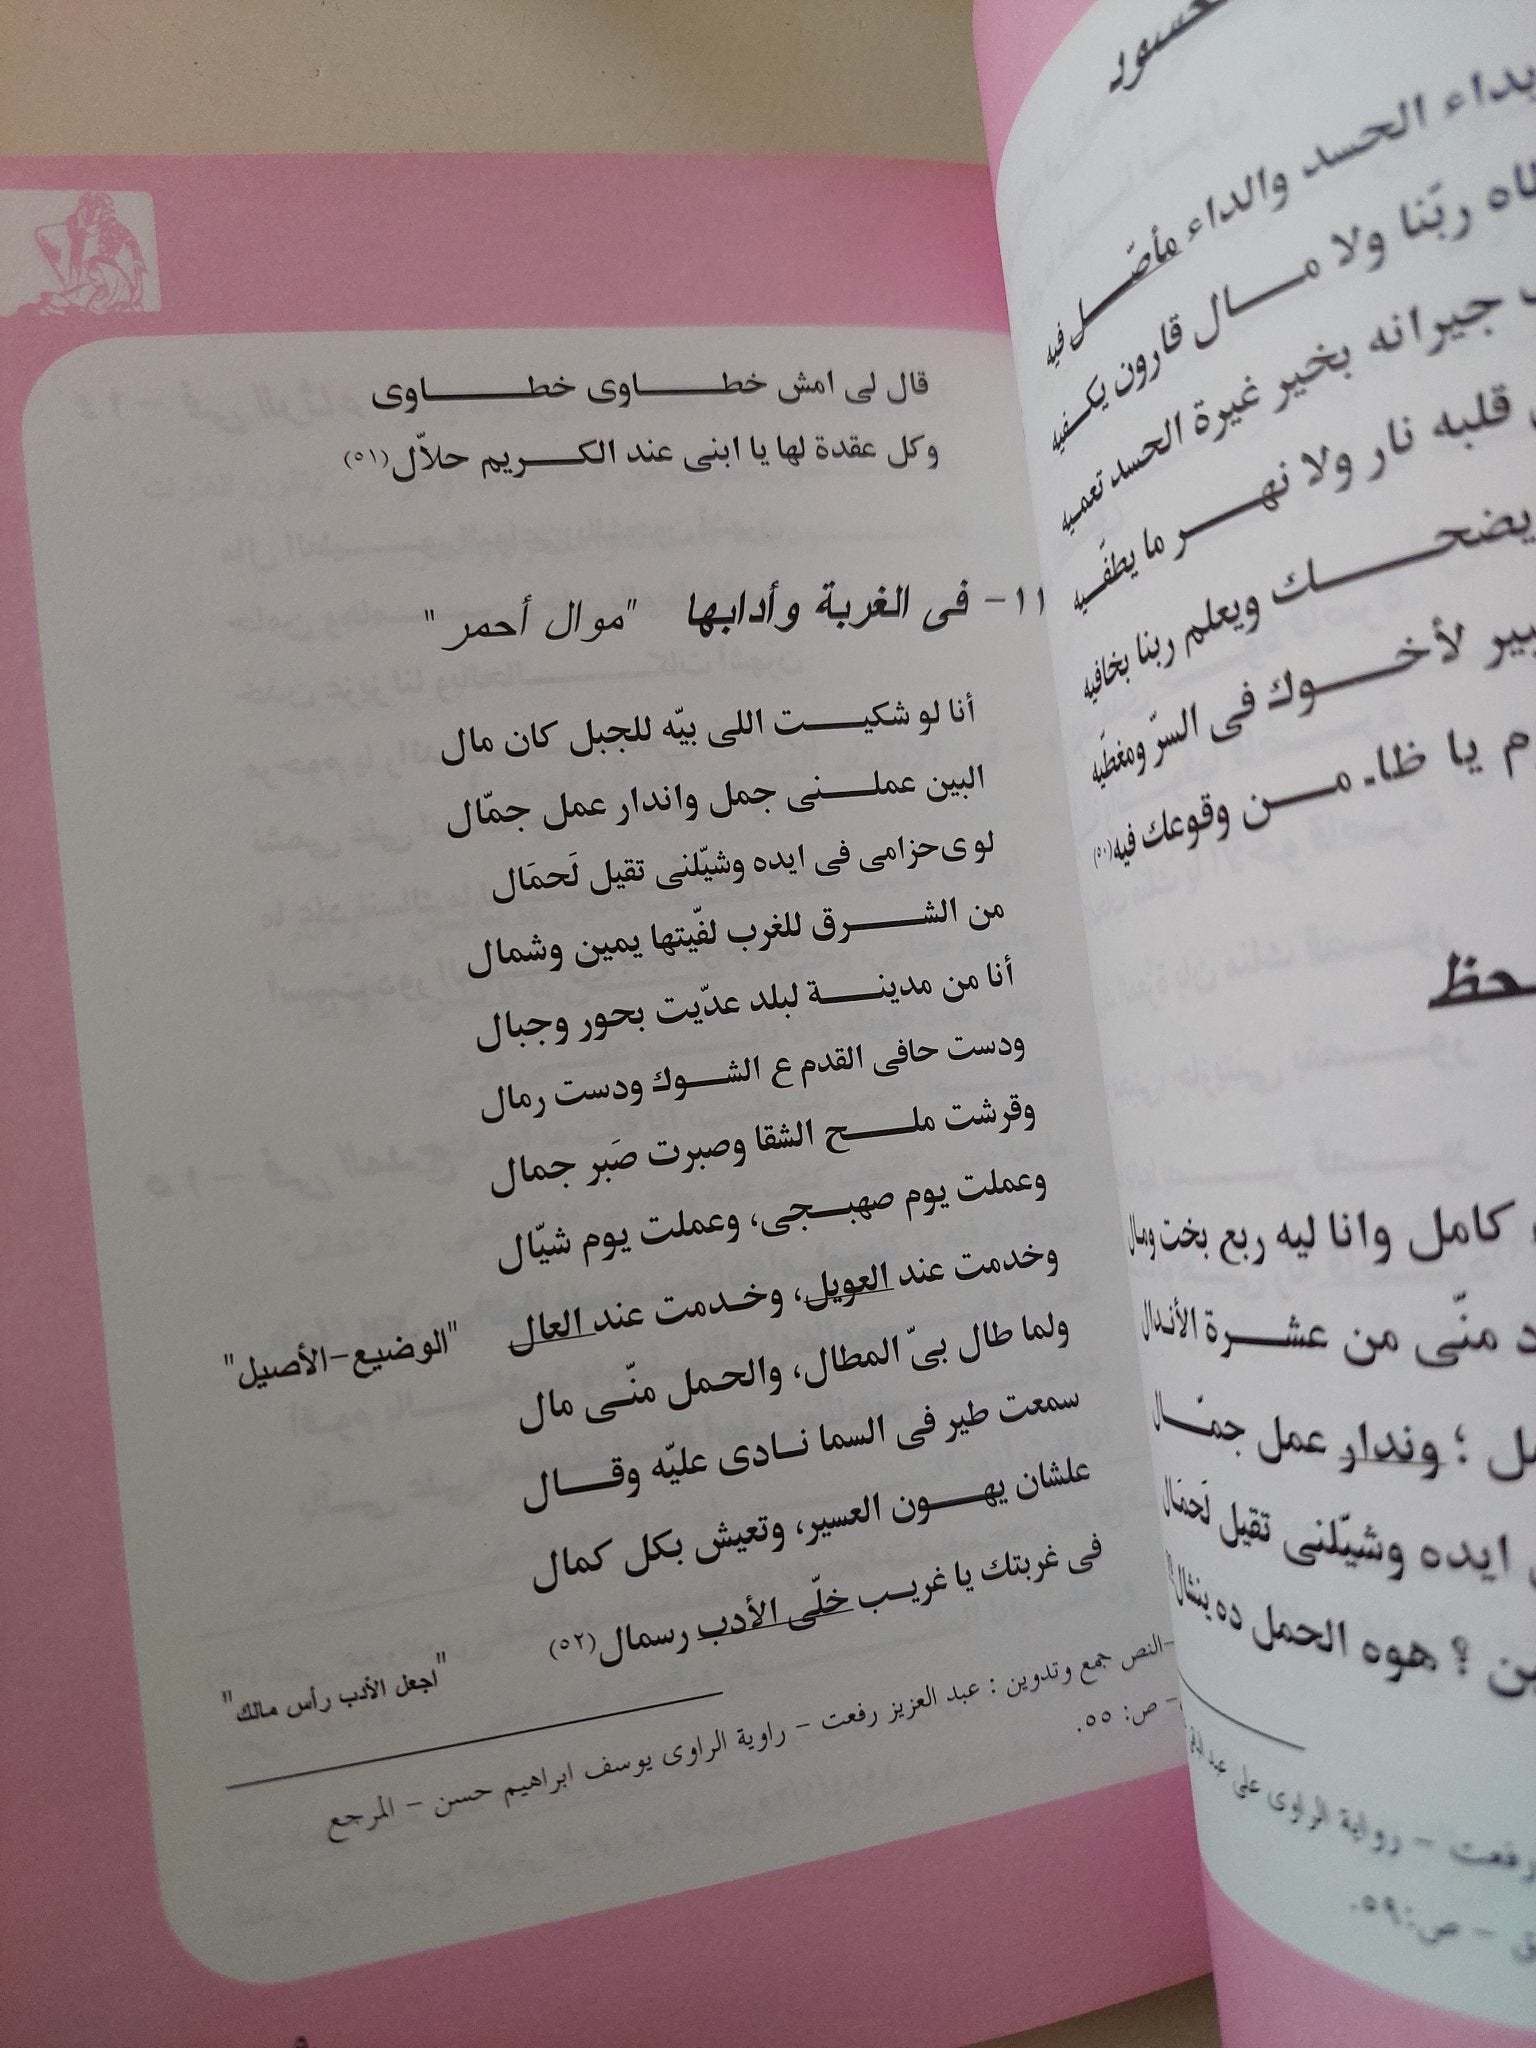 قال لى امش خطاوى خطاوى
وكل عقدة لها يا ابنى عند الكريم حلاّل (٥١)
١١- فى الغربة وأدابها "موال أحمر"
أنا لو شكيت اللى بيّه للجبل كان مال
البين عملنى جمل واندار عمل جمّال
لوى حزامى فى ايده وشيّلنى تقيل لَحمَال
من الشرق للغرب لفّيتها يمين وشمال
أنا من مدينة لبلد عدّيت بحور وجبال
ودست حافى القدم ع الشوك ودست رمال
وقرشت ملح الشقا وصبرت صَبر جمال
وعملت يوم صهبجى، وعملت يوم شيّال
وخدمت عند العويل، وخدمت عند العال "الوضيع-الأصيل"
ولما طال بىّ المطال، والحمل منّى مال
سمعت طير فى السما نادى عليّه وقال
علشان يهون العسير، وتعيش بكل كمال
فى غربتك يا غريب خلّى الأدب رسمال (٥٢)
"اجعل الأدب رأس مالك"
-النص جمع وتدوين : عبد العزيز رفعت - راوية الراوى يوسف ابراهيم حسن - المرجع
- ص: ٥٥.
بداء الحسد والداء مأصّل فيه
ربّنا ولا مال قارون يكفيه
جيرانه بخير غيرة الحسد تعميه
قلبه نار ولا نهر ما يطفّيه
يضحك ويعلم ربنا بخافيه
لأخوك فى السرّ ومغطّيه
يا ظا من وقوعك فيه (٥٠)
كامل وانا ليه ربع بخت ومال
منّى من عشرة الأندال
؛ وندار عمل جمّال
ايده وشيّلنى تقيل لَحمَال
؟ هوه الحمل ده ينشال
رفعت - رواية الراوى على عبد
- ص: ٥٩.